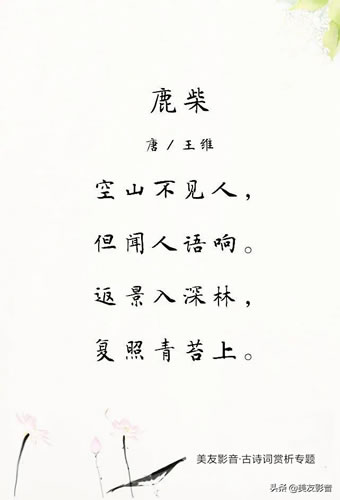 鹿柴
唐/王维
空山不见人，
但闻人语响。
返景入深林，
复照青苔上。
美友影音·古诗词赏析专题
头条@美友影音